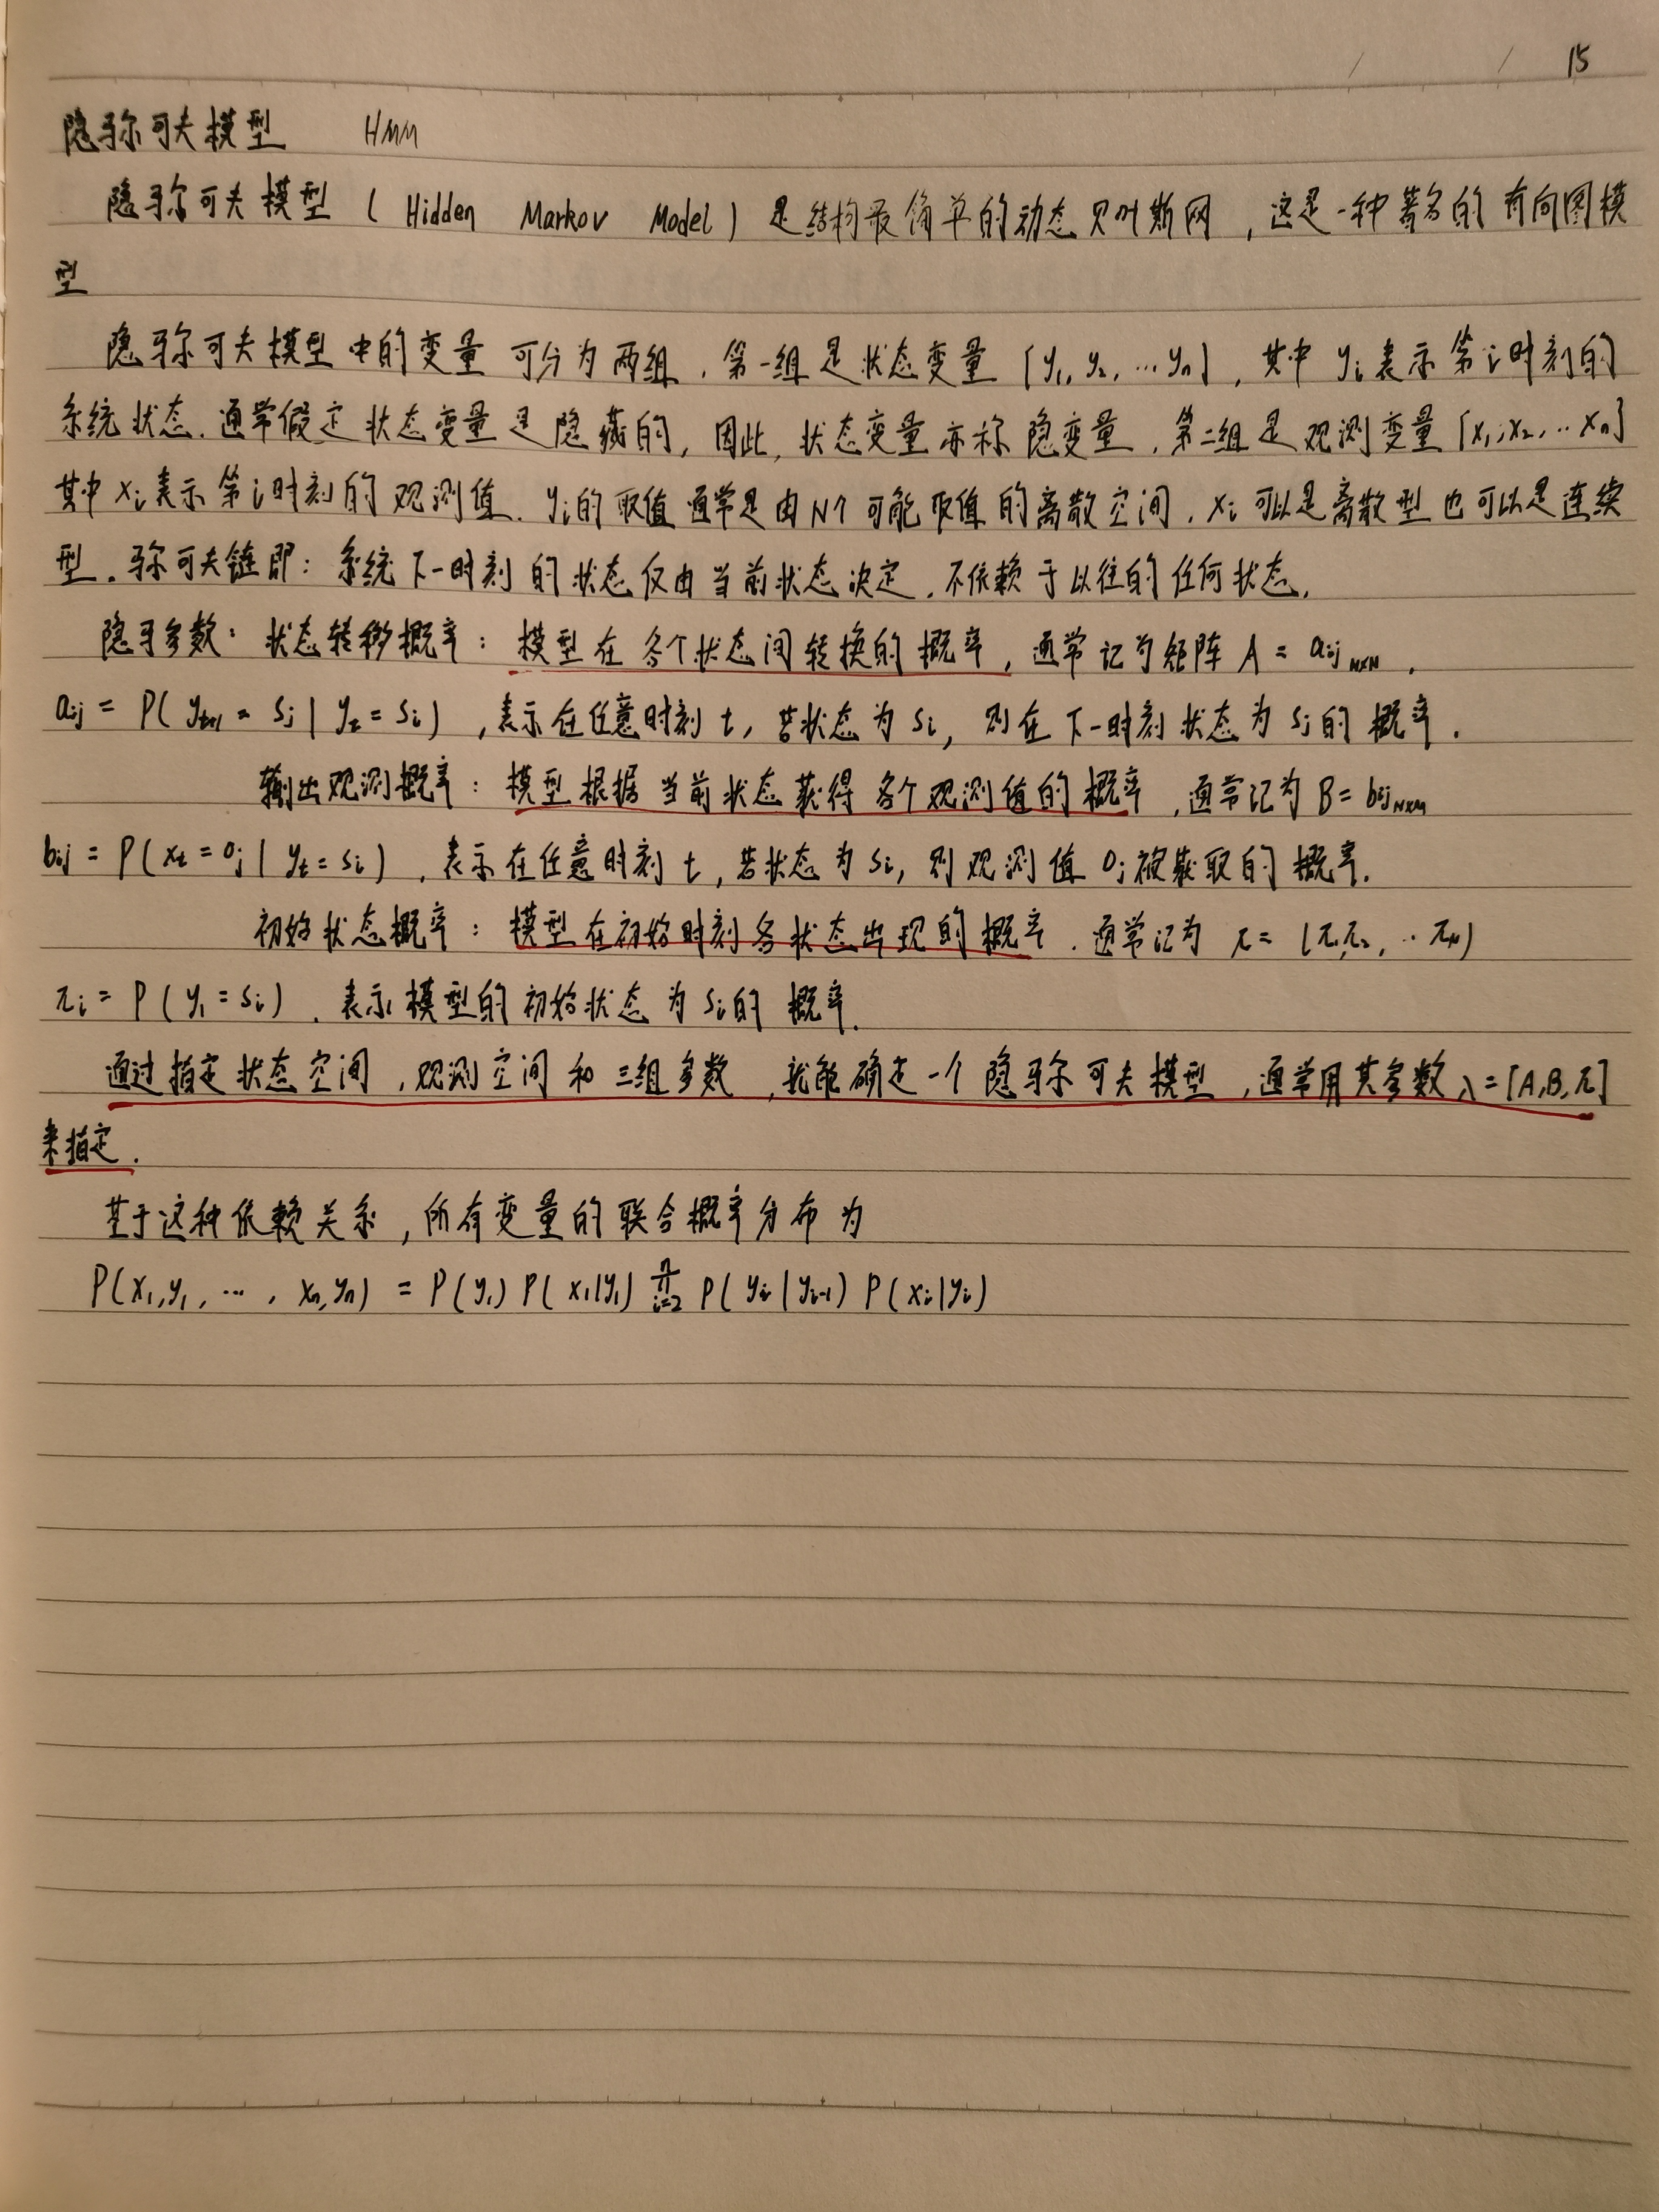 15
隐马尔可夫模型 HMM
隐马尔可夫模型 (Hidden Markov Model) 是结构最简单的动态贝叶斯网,这是一种著名的有向图模
型
隐马尔可夫模型中的变量可分为两组.第一组是状态变量 [y₁, y₂, … yₙ],其中 yᵢ 表示第 i 时刻的
系统状态.通常假定状态变量是隐藏的,因此,状态变量亦称隐变量.第二组是观测变量 [x₁, x₂, .. xₙ]
其中 xᵢ 表示第 i 时刻的观测值. yᵢ的取值通常是由N个可能取值的离散空间. xᵢ 可以是离散型也可以是连续
型.马尔可夫链即:系统下一时刻的状态仅由当前状态决定.不依赖于以往的任何状态.
隐马参数:状态转移概率:模型在各个状态间转换的概率,通常记为矩阵 A = aij N×N .
aij = P( yt+1 = sj | yt = si ) ,表示在任意时刻 t, 若状态为 si, 则在下一时刻状态为 sj 的概率.
输出观测概率:模型根据当前状态获得各个观测值的概率,通常记为 B = bij N×M
bij = P( xt = oj | yt = si ) .表示在任意时刻 t,若状态为 si, 则观测值 oj 被获取的概率.
初始状态概率:模型在初始时刻各状态出现的概率.通常记为 π = (π₁,π₂, .. πN)
πi = P ( y₁ = si ) .表示模型的初始状态为 si的概率.
通过指定状态空间,观测空间和三组参数,就能确定一个隐马尔可夫模型,通常用其参数 λ = [A,B,π]
来指定.
基于这种依赖关系,所有变量的联合概率分布为
P(x₁,y₁, … , xₙ,yₙ) = P(y₁) P( x₁|y₁) ∏ⁿᵢ₌₂ P( yᵢ | yᵢ₋₁) P( xᵢ | yᵢ)